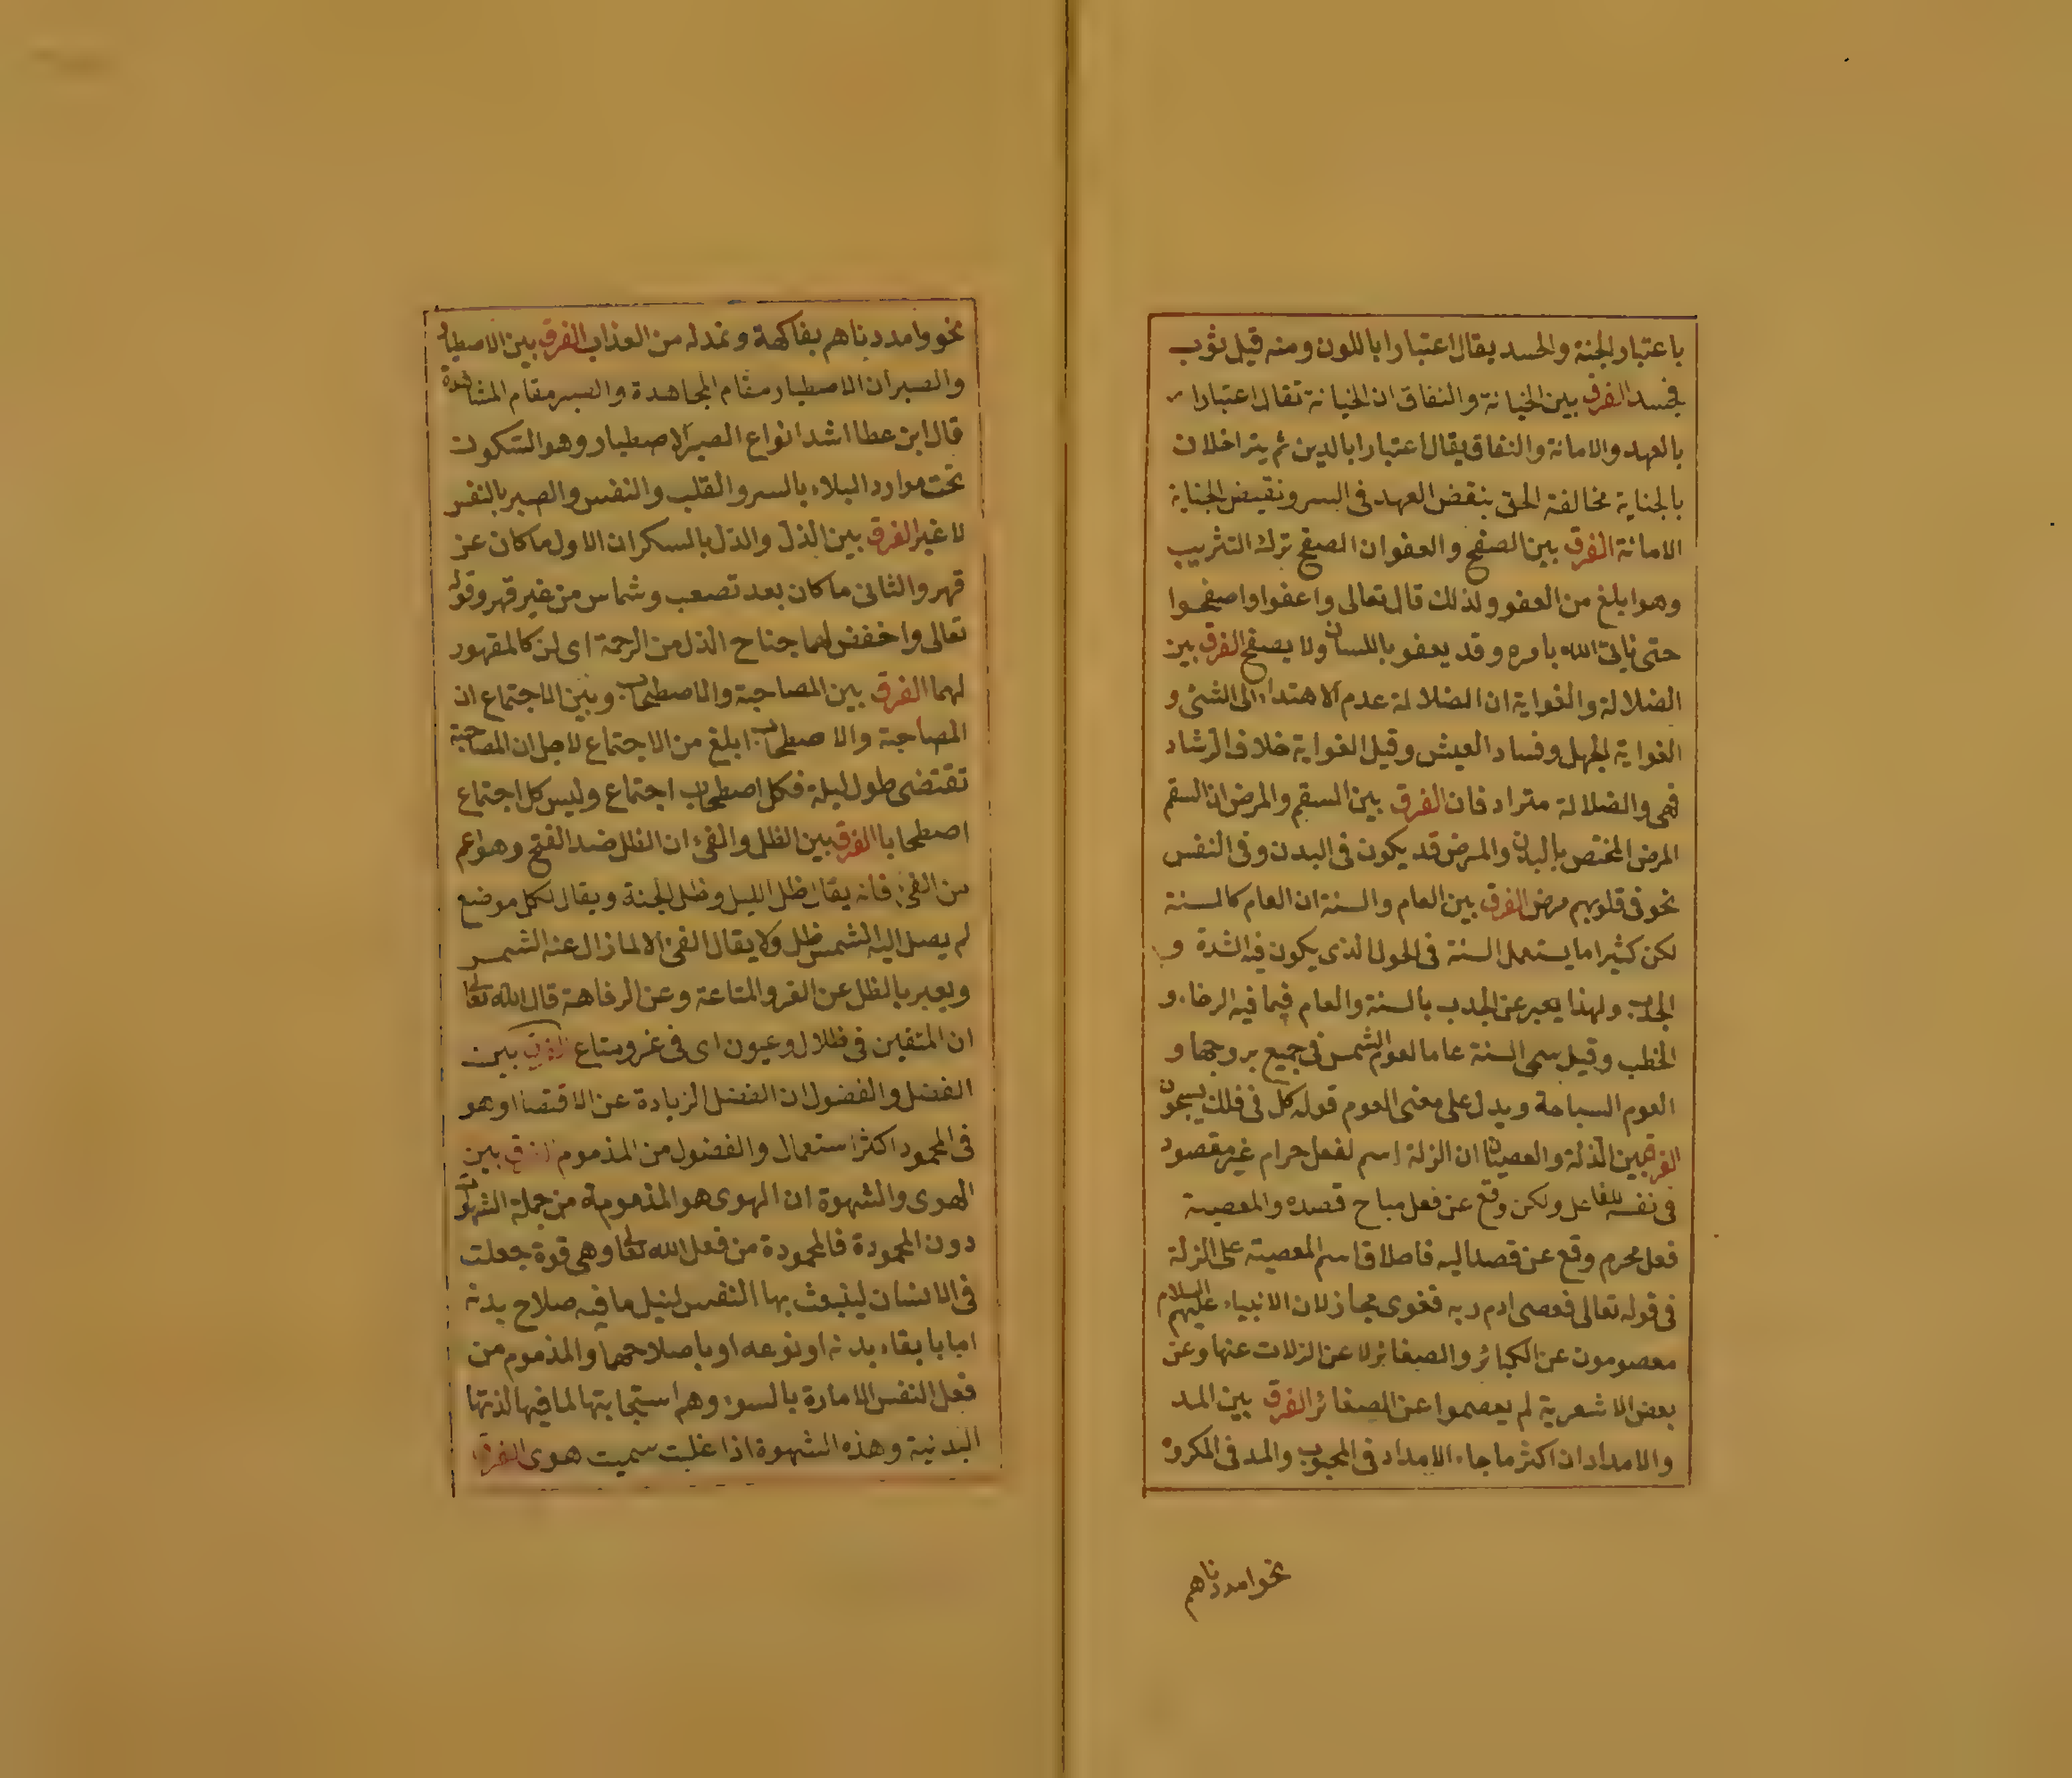 باعتبار الجنة والجسد يقال اعتبارا باللون ومنه قيل ثوب
مجسد الفرق بين الخيانة والنفاق ان الخيانة تقال اعتبارا
بالعهد والامانة والنفاق يقال اعتبارا بالدين ثم يتداخلان
بالجناية مخالفة الحق بنقض العهد فى السر ونقيض الجناية
الامانة الفرق بين الصفح والعفو ان الصفح ترك التثريب
وهو ابلغ من العفو ولذلك قال تعالى واعفوا واصفحوا
حتى ياتى الله بامره وقد يعفو باللسان ولا يصفح الفرق بين
الضلالة والغواية ان الضلالة عدم الاهتداء الى الشئ و
الغواية الجهل وفساد العيش وقيل الغواية خلاف الرشاد
فهى والضلالة مترادفان الفرق بين السقم والمرض ان السقم
المرض المختص بالبدن والمرض قد يكون فى البدن وفى النفس
نحو فى قلوبهم مرض الفرق بين العام والسنة ان العام كالسنة
لكن كثيرا ما يستعمل السنة فى الحول الذى يكون فيه الشدة و
الجدب ولهذا يعبر عن الجدب بالسنة والعام فيما فيه الرخاء و
الخطب وقيل سمى السنة عاما لعوم الشمس فى جميع بروجها و
العوم السباحة ويدل على معنى العوم قوله كل فى فلك يسبحون
الفرق بين الذلة والعصيان ان الزلة اسم لفعل حرام غير مقصود
فى نفسه للفاعل ولكن وقع عن فعل مباح قصده والمعصية
فعل محرم وقع عن قصد اليه فاصلاق اسم المعصية على الزلة
فى قوله تعالى فعصى ادم ربه فغوى مجاز لان الانبياء عليهم السلام
معصومون عن الكبائر والصغائر لا عن الزلات عنها وعن
بعض الاشعرية لم يعصموا عن الصغائر الفرق بين المد
والامداد ان اكثر ما جاء الامداد فى المحبوب والمد فى المكروه
نحو امددناهم
نحو وامددناهم بفاكهة ونمد له من العذاب الفرق بين الاصطبار
والصبر ان الاصطبار مقام المجاهدة والصبر مقام المشاهدة
قال ابن عطا اشد انواع الصبر الاصطبار وهو السكون
تحت موارد البلاء بالسر والقلب والنفس والصبر بالنفس
لا غير الفرق بين الذل والذل بالسكر ان الاول ما كان عن
قهر والثانى ما كان بعد تصعب وشماس من غير قهر وقوله
تعالى واخفض لهما جناح الذل من الرحمة اى لن كالمقهور
لهما الفرق بين المصاحبة والاصطحاب وبين الاجتماع ان
المصاحبة والاصطحاب ابلغ من الاجتماع لاجل ان المصاحبة
تقتضى طول ليلة فكل اصطحاب اجتماع وليس كل اجتماع
اصطحابا الفرق بين الظل والفئ ان الظل ضد الفتح وهو اعم
من الفئ فانه يقال ظل الليل وظل الجنة ويقال لكل موضع
لم يصل اليه الشمس ظل ولا يقال الفئ الا لما زال عنه الشمس
ويعبر بالظل عن العز والمتاعة وعن الرفاهة قال الله تعالى
ان المتقين فى ظلال وعيون اى فى عز ومتاع الفرق بين
الفضل والفضول ان الفضل الزيادة عن الاقتصا وهو
فى المحمود اكثر استعمال والفضول من المذموم الفرق بين
الهوى والشهوة ان الهوى هو المذمومة من جملة الشهوات
دون المحمودة فالمحمودة من فعل الله تعالى وهى قوة جعلت
فى الانسان لينبعث بها النفس لنيل ما فيه صلاح بدنه
اما بابقاء بدنه او نوعه او باصلاحهما والمذموم من
فعل النفس الامارة بالسوء وهم استجابتها لما فيها لذتها
البدنية وهذه الشهوة اذا غلبت سميت هوى الفرق